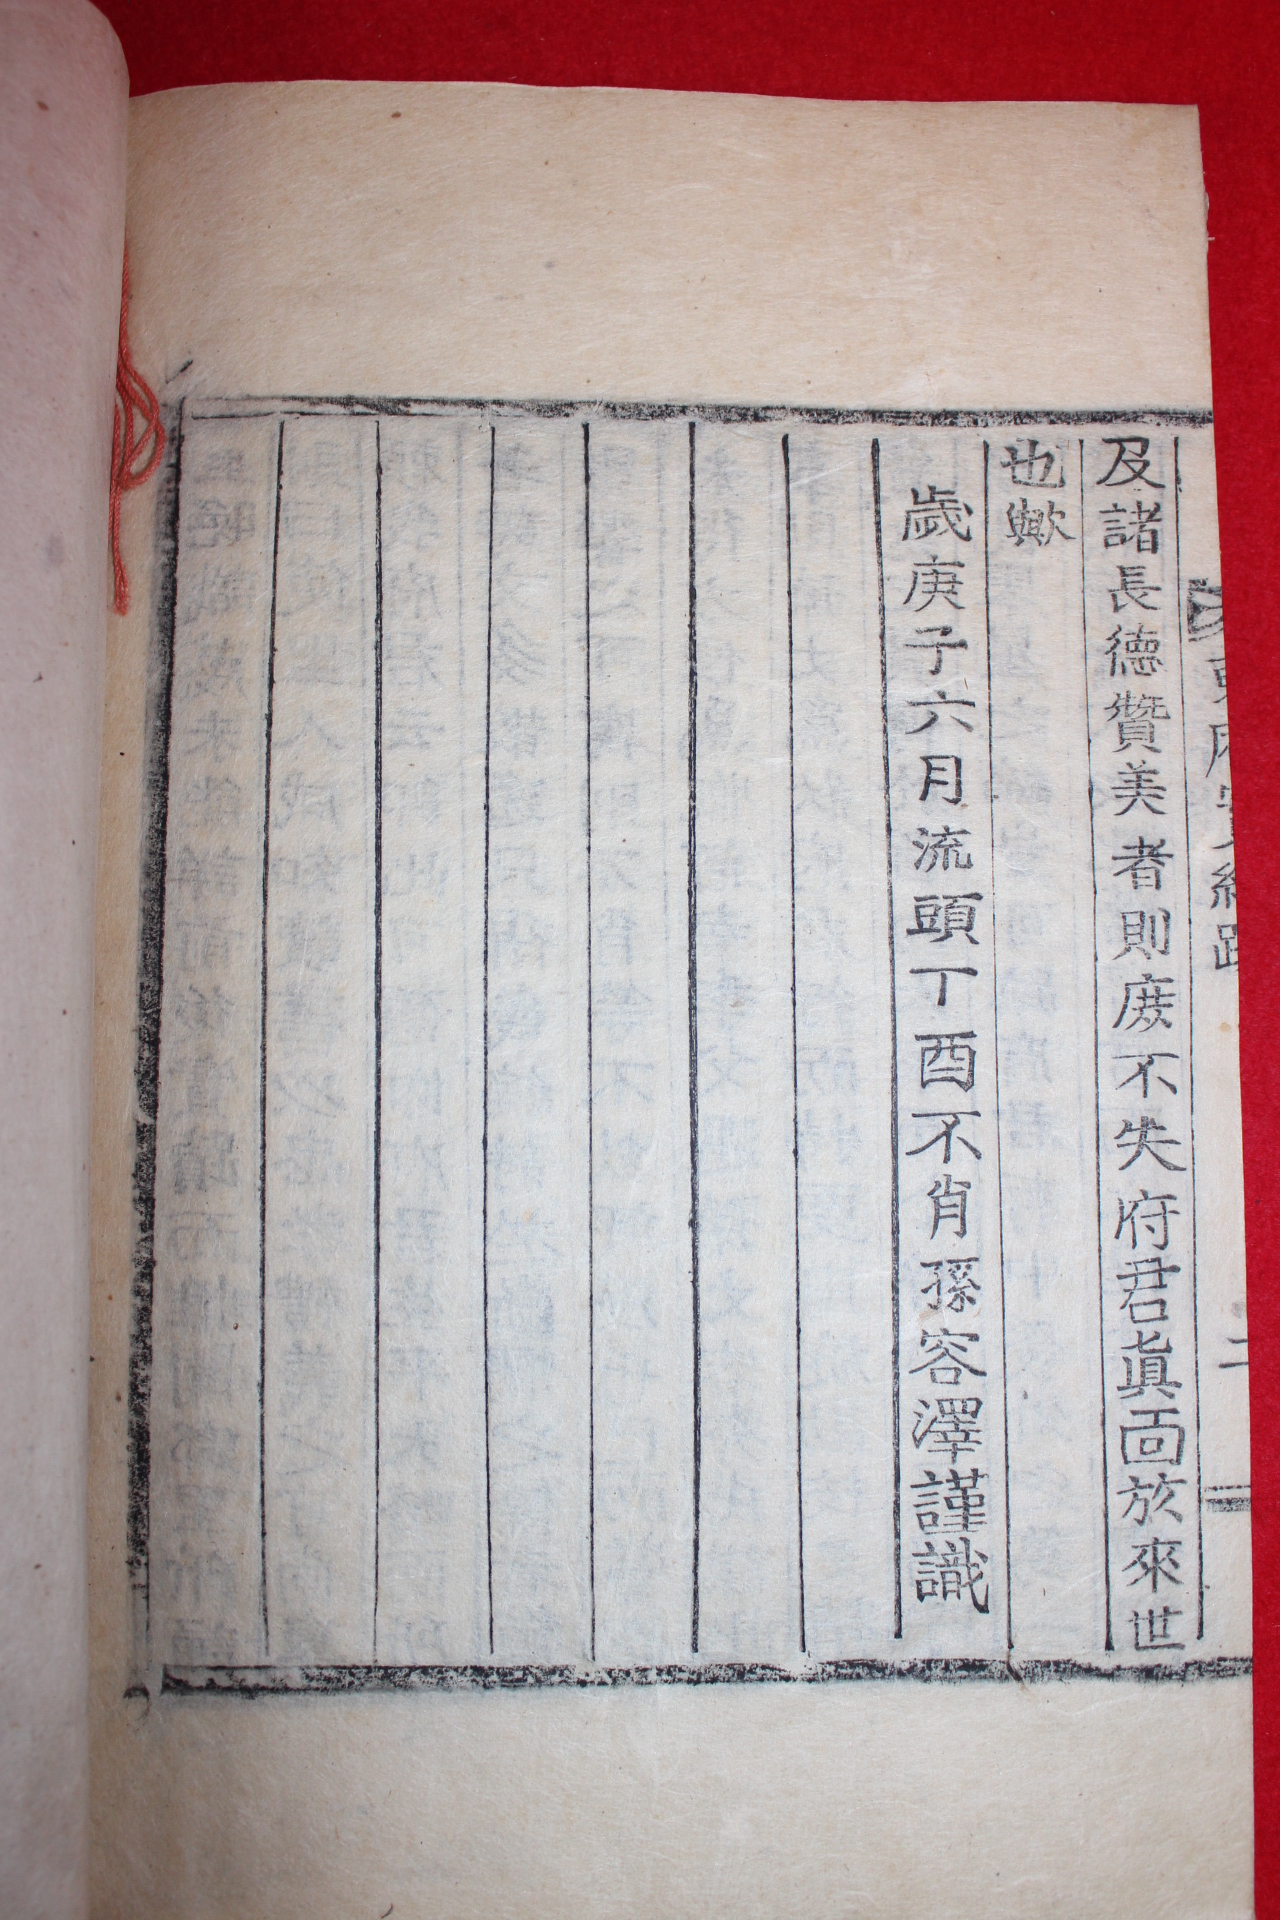 及諸長德贊美者則庶不失府君眞面於來世
也歟
歲庚子六月流頭丁酉不肖孫容澤謹識
二